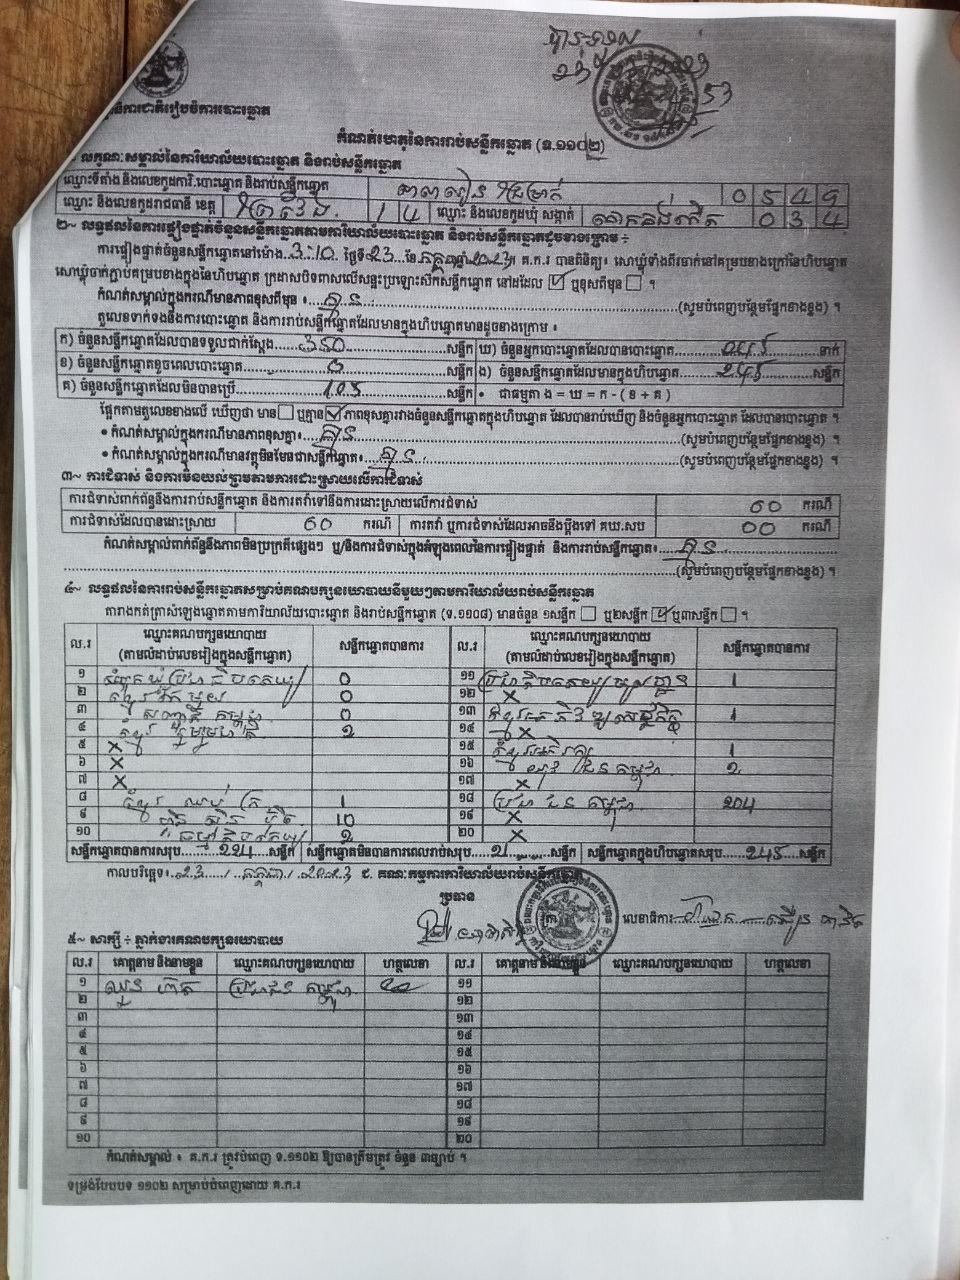 កំណត់ហេតុនៃការរាប់សន្លឹកឆ្នោត (ទ.១១០២)
លក្ខណៈសម្គាល់នៃការិយាល័យបោះឆ្នោត និងរាប់សន្លឹកឆ្នោត
ឈ្មោះទីតាំង និងលេខកូដការិ.បោះឆ្នោត និងរាប់សន្លឹកឆ្នោត 0 5 4 9
ឈ្មោះ និងលេខកូដរាជធានី ខេត្ត ព្រៃវែង 1 4 ឈ្មោះ និងលេខកូដឃុំ សង្កាត់ 0 3 4
២~ លទ្ធផលនៃការផ្ទៀងផ្ទាត់ចំនួនសន្លឹកឆ្នោតតាមការិយាល័យបោះឆ្នោត និងរាប់សន្លឹកឆ្នោតដូចខាងក្រោម ÷
ការផ្ទៀងផ្ទាត់ចំនួនសន្លឹកឆ្នោតនៅម៉ោង 3:10 ថ្ងៃទី 23 ខែ កក្កដា ឆ្នាំ 2023 គ.ក.រ បានពិនិត្យ៖ សោឃ្លុំទាំងពីរចាក់នៅគម្របខាងក្រៅនៃហិបឆ្នោត
សោឃ្លុំចាក់ភ្ជាប់គម្របខាងក្នុងនៃហិបឆ្នោត ក្រដាសបិទពាសលើសន្ទះប្រឡោះសឹកសន្លឹកឆ្នោត នៅដដែល ☑ ឬខុសពីមុន ☐ ។
កំណត់សម្គាល់ក្នុងករណីមានភាពខុសពីមុន ៖ គ្មាន (សូមបំពេញបន្ថែមផ្នែកខាងខ្នង) ។
តួលេខទាក់ទងនឹងការបោះឆ្នោត និងការរាប់សន្លឹកឆ្នោតដែលមានក្នុងហិបឆ្នោតមានដូចខាងក្រោម ៖
ក) ចំនួនសន្លឹកឆ្នោតដែលបានទទួលជាក់ស្តែង 350 សន្លឹក ឃ) ចំនួនអ្នកបោះឆ្នោតដែលបានបោះឆ្នោត 245 នាក់
ខ) ចំនួនសន្លឹកឆ្នោតខូចពេលបោះឆ្នោត 0 សន្លឹក ង) ចំនួនសន្លឹកឆ្នោតដែលមានក្នុងហិបឆ្នោត 245 សន្លឹក
គ) ចំនួនសន្លឹកឆ្នោតដែលមិនបានប្រើ 105 សន្លឹក • ជាធម្មតា ង = ឃ = ក - ( ខ + គ )
ផ្អែកតាមតួលេខខាងលើ ឃើញថា មាន ☐ ឬគ្មាន ☑ ភាពខុសគ្នារវាងចំនួនសន្លឹកឆ្នោតក្នុងហិបឆ្នោត ដែលបានរាប់ឃើញ និងចំនួនអ្នកបោះឆ្នោត ដែលបានបោះឆ្នោត ។
• កំណត់សម្គាល់ក្នុងករណីមានភាពខុសគ្នា៖ គ្មាន (សូមបំពេញបន្ថែមផ្នែកខាងខ្នង) ។
• កំណត់សម្គាល់ក្នុងករណីមានវត្ថុមិនមែនជាសន្លឹកឆ្នោត៖ គ្មាន (សូមបំពេញបន្ថែមផ្នែកខាងខ្នង) ។
៣~ ការជំទាស់ និងការមិនយល់ព្រមតាមការដោះស្រាយលើការជំទាស់
ការជំទាស់ពាក់ព័ន្ធនឹងការរាប់សន្លឹកឆ្នោត និងការតវ៉ាទៅនឹងការដោះស្រាយលើការជំទាស់ 00 ករណី
ការជំទាស់ដែលបានដោះស្រាយ 00 ករណី ការតវ៉ា ឬការជំទាស់ដែលអាចនឹងប្តឹងទៅ គឃ.សប 00 ករណី
កំណត់សម្គាល់ពាក់ព័ន្ធនឹងភាពមិនប្រក្រតីផ្សេងៗ ឬ/និងការជំទាស់ក្នុងអំឡុងពេលនៃការផ្ទៀងផ្ទាត់ និងការរាប់សន្លឹកឆ្នោត៖ គ្មាន
(សូមបំពេញបន្ថែមផ្នែកខាងខ្នង) ។
៤~ លទ្ធផលនៃការរាប់សន្លឹកឆ្នោតសម្រាប់គណបក្សនយោបាយនីមួយៗតាមការិយាល័យរាប់សន្លឹកឆ្នោត
តារាងកត់ត្រាសំឡេងឆ្នោតតាមការិយាល័យបោះឆ្នោត និងរាប់សន្លឹកឆ្នោត (ទ.១១០៨) មានចំនួន ១សន្លឹក ☐ ឬ២សន្លឹក ☑ ឬ៣សន្លឹក ☐ ។
ល.រ ឈ្មោះគណបក្សនយោបាយ (តាមលំដាប់លេខរៀងក្នុងសន្លឹកឆ្នោត) សន្លឹកឆ្នោតបានការ ល.រ ឈ្មោះគណបក្សនយោបាយ (តាមលំដាប់លេខរៀងក្នុងសន្លឹកឆ្នោត) សន្លឹកឆ្នោតបានការ
១ 0 ១១ 1
២ 0 ១២ X
៣ 0 ១៣ 1
៤ 2 ១៤ X
៥ X ១៥ 1
៦ X ១៦ 2
៧ X ១៧ X
៨ 1 ១៨ ប្រជាជនកម្ពុជា 204
៩ 10 ១៩ X
១០ 2 ២០ X
សន្លឹកឆ្នោតបានការសរុប 224 សន្លឹក សន្លឹកឆ្នោតមិនបានការពេលរាប់សរុប 21 សន្លឹក សន្លឹកឆ្នោតក្នុងហិបឆ្នោតសរុប 245 សន្លឹក
កាលបរិច្ឆេទ៖ 23 / កក្កដា / 2023 ជ. គណៈកម្មការការិយាល័យរាប់សន្លឹកឆ្នោត
ប្រធាន
លេខាធិការ
៥~ សាក្សី ÷ ភ្នាក់ងារគណបក្សនយោបាយ
ល.រ គោត្តនាម និងនាមខ្លួន ឈ្មោះគណបក្សនយោបាយ ហត្ថលេខា ល.រ គោត្តនាម និងនាមខ្លួន ឈ្មោះគណបក្សនយោបាយ ហត្ថលេខា
១ ប្រជាជនកម្ពុជា ១១
២ ១២
៣ ១៣
៤ ១៤
៥ ១៥
៦ ១៦
៧ ១៧
៨ ១៨
៩ ១៩
១០ ២០
កំណត់សម្គាល់ ៖ គ.ក.រ ត្រូវបំពេញ ទ.១១០២ ឱ្យបានត្រឹមត្រូវ ចំនួន ៣ច្បាប់ ។
ទម្រង់បែបបទ ១១០២ សម្រាប់បំពេញដោយ គ.ក.រ